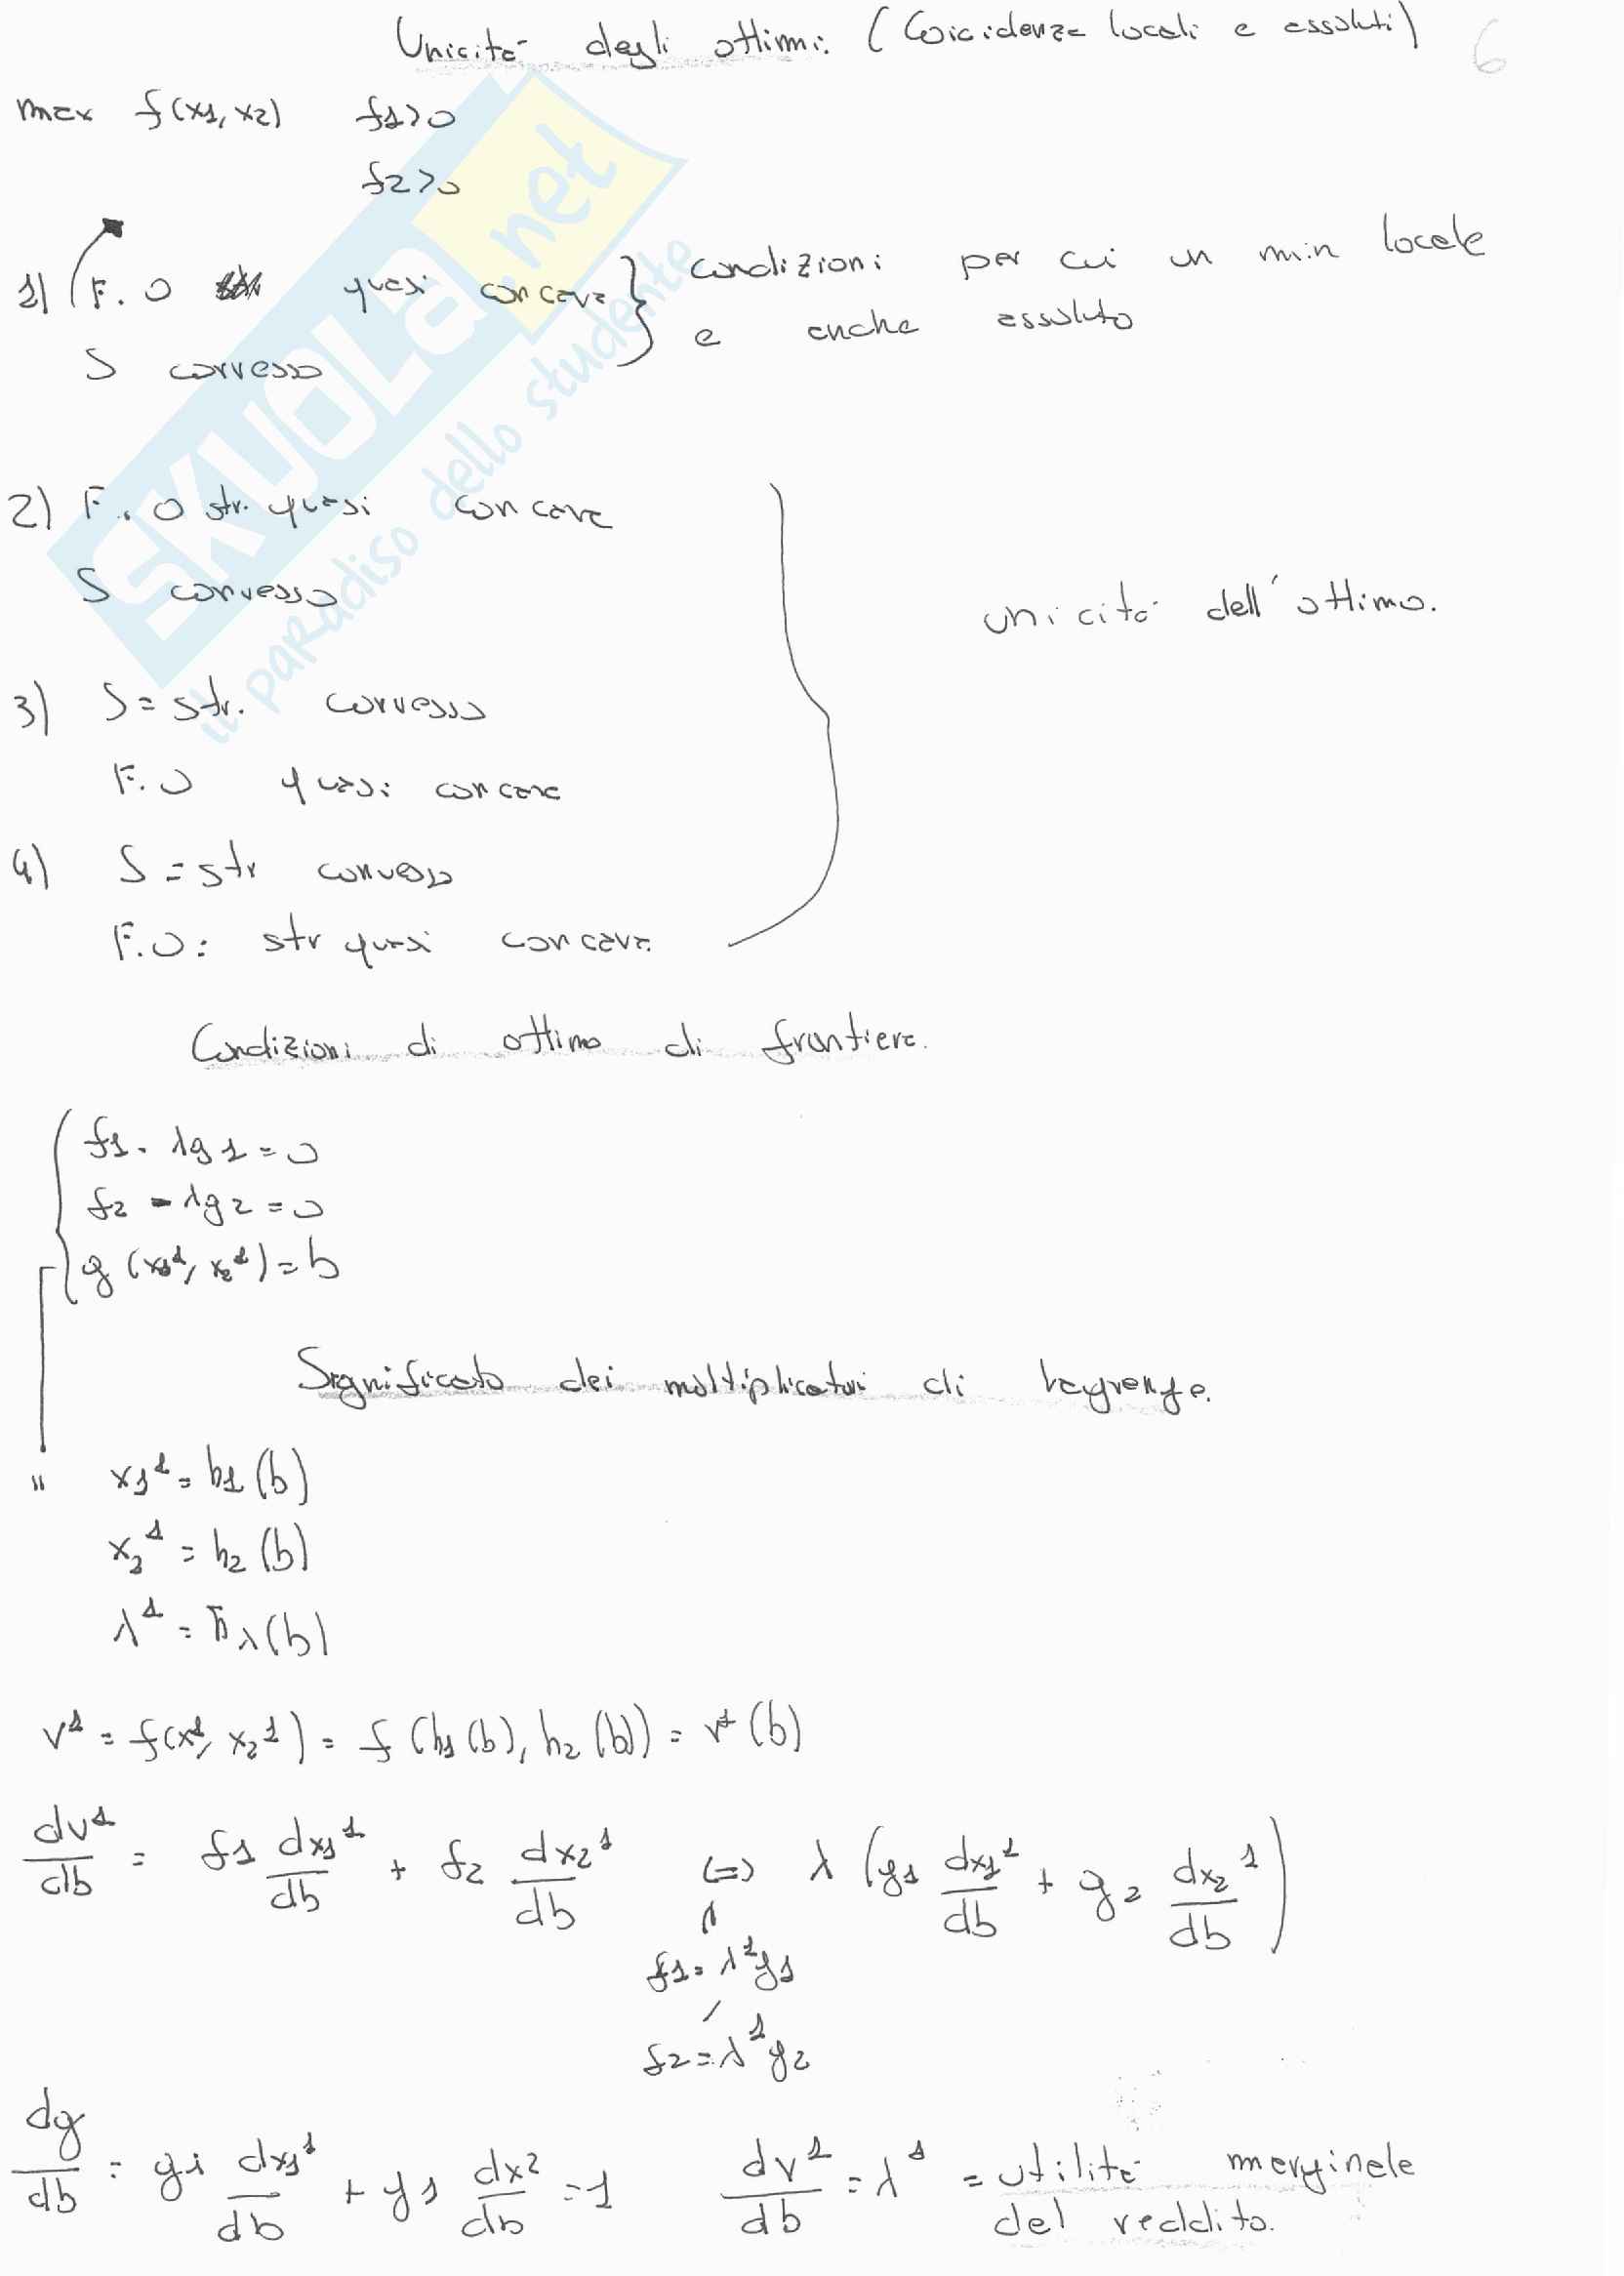 Unicità degli ottimi: (Coicidenza locali e assoluti)
6
max f(x1, x2) f1>0
f2>0
1) F. O quasi concava } condizioni per cui un min locale
S convesso e anche assoluto
2) F. O str. quasi concava
S convesso
unicità dell'ottimo.
3) S = str. convesso
F.O quasi concava
4) S = str convesso
F.O: str quasi concava
Condizioni di ottimo di frontiera.
f1 - λg1 = 0
f2 - λg2 = 0
g (x1¹, x2¹) = b
Significato dei moltiplicatori di lagrange.
" x1¹ = h1 (b)
x2¹ = h2 (b)
λ¹ = hλ (b)
v¹ = f(x¹, x2¹) = f (h1 (b), h2 (b)) = v¹ (b)
dv¹/db = f1 dx1¹/db + f2 dx2¹/db (=) λ (g1 dx1¹/db + g2 dx2¹/db)
f1 = λ¹g1
f2 = λ¹g2
dg/db = gi dx1¹/db + g1 dx2/db = 1 dv¹/db = λ¹ = utilità marginale
del reddito.
SKUOLA.net
il paradiso dello studente